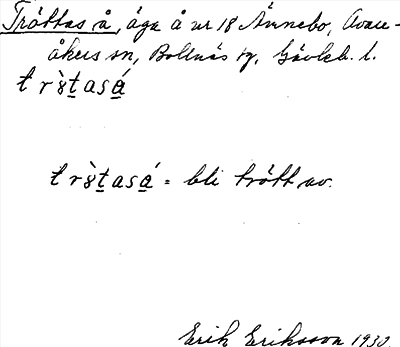 Tröttas å, äga å nr 18 Ännebo, Avan-
åkers sn, Bollnäs tg, Gävleb. l.
t r ȣ̀ t̲ a s á̲
t r ȣ̀ t̲ a s á̲ = bli trött av.
Erik Eriksson 1930.